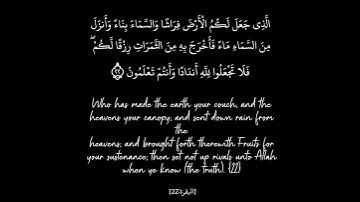 الَّذِي جَعَلَ لَكُمُ الْأَرْضَ فِرَاشًا وَالسَّمَاءَ بِنَاءً وَأَنزَلَ
مِنَ السَّمَاءِ مَاءً فَأَخْرَجَ بِهِ مِنَ الثَّمَرَاتِ رِزْقًا لَّكُمْ ۖ
فَلَا تَجْعَلُوا لِلَّهِ أَندَادًا وَأَنتُمْ تَعْلَمُونَ ﴿٢٢﴾
Who has made the earth your couch, and the
heavens your canopy; and sent down rain from
the
heavens; and brought forth therewith Fruits for
your sustenance; then set not up rivals unto Allah
when ye know (the truth). (22)
[البقرة:22]